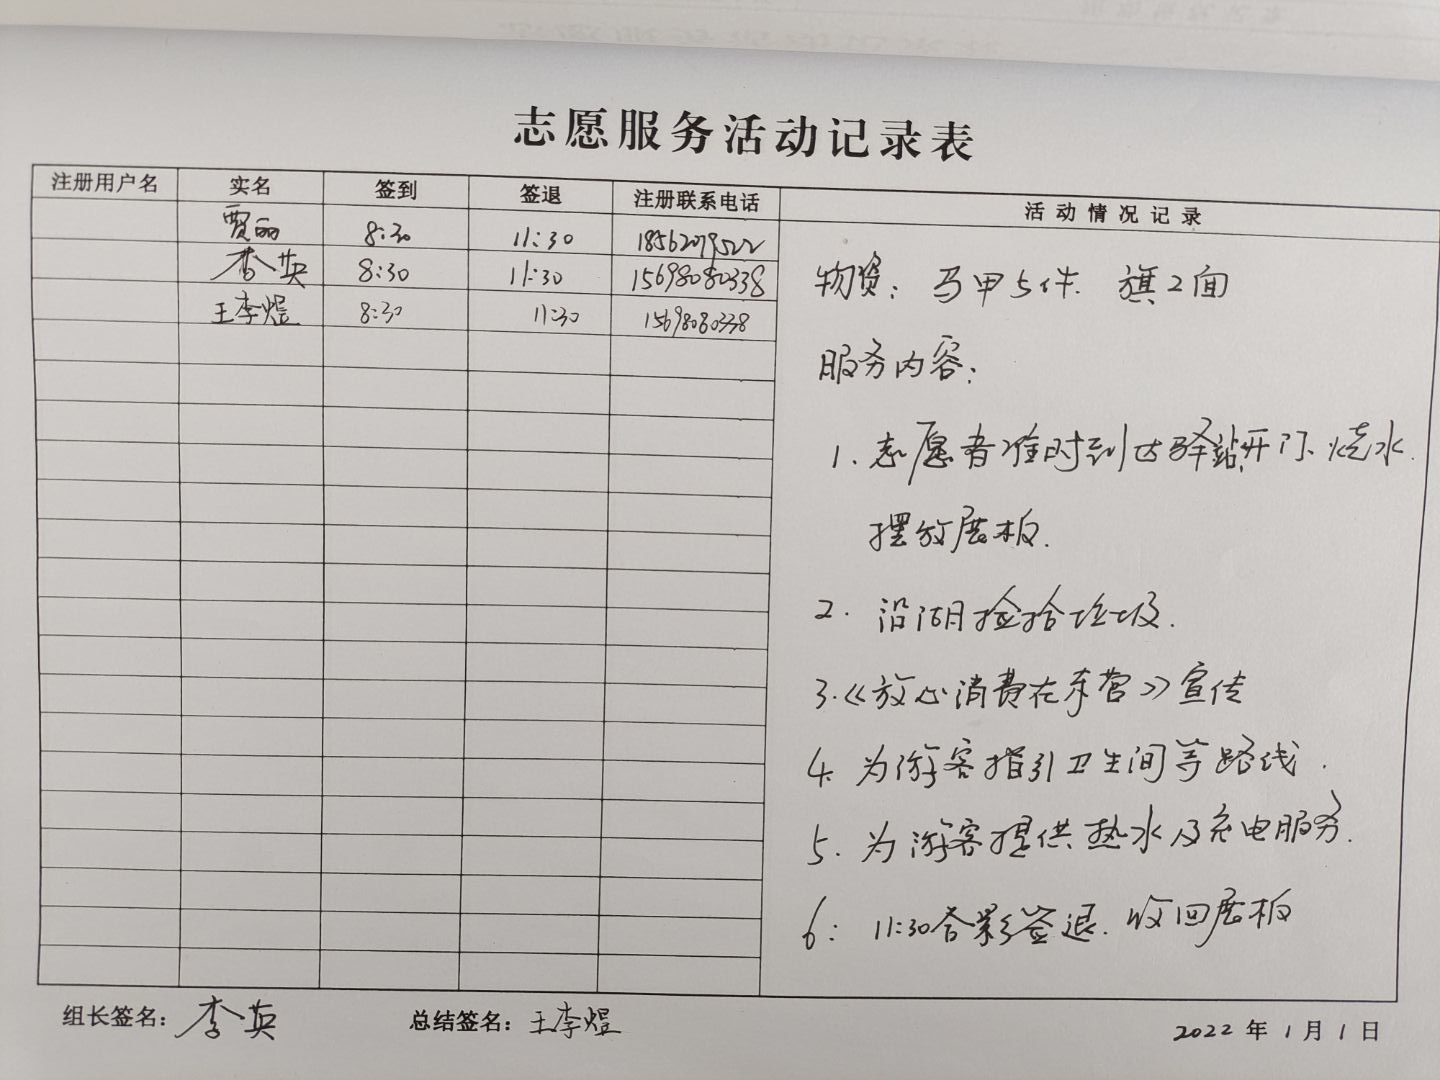 志愿服务活动记录表
注册用户名 实名 签到 签退 注册联系电话 活动情况记录
贾丽 8:30 11:30 18562079522
李英 8:30 11:30 15698080338
王李煜 8:30 11:30 15698080338
物资：马甲5件 旗2面
服务内容：
1. 志愿者准时到达驿站开门、烧水.
摆放展板.
2. 沿湖捡拾垃圾.
3.《放心消费在东营》宣传
4. 为游客指引卫生间等路线.
5. 为游客提供热水及充电服务.
6: 11:30合影签退. 收回展板
组长签名：李英 总结签名：王李煜 2022年1月1日